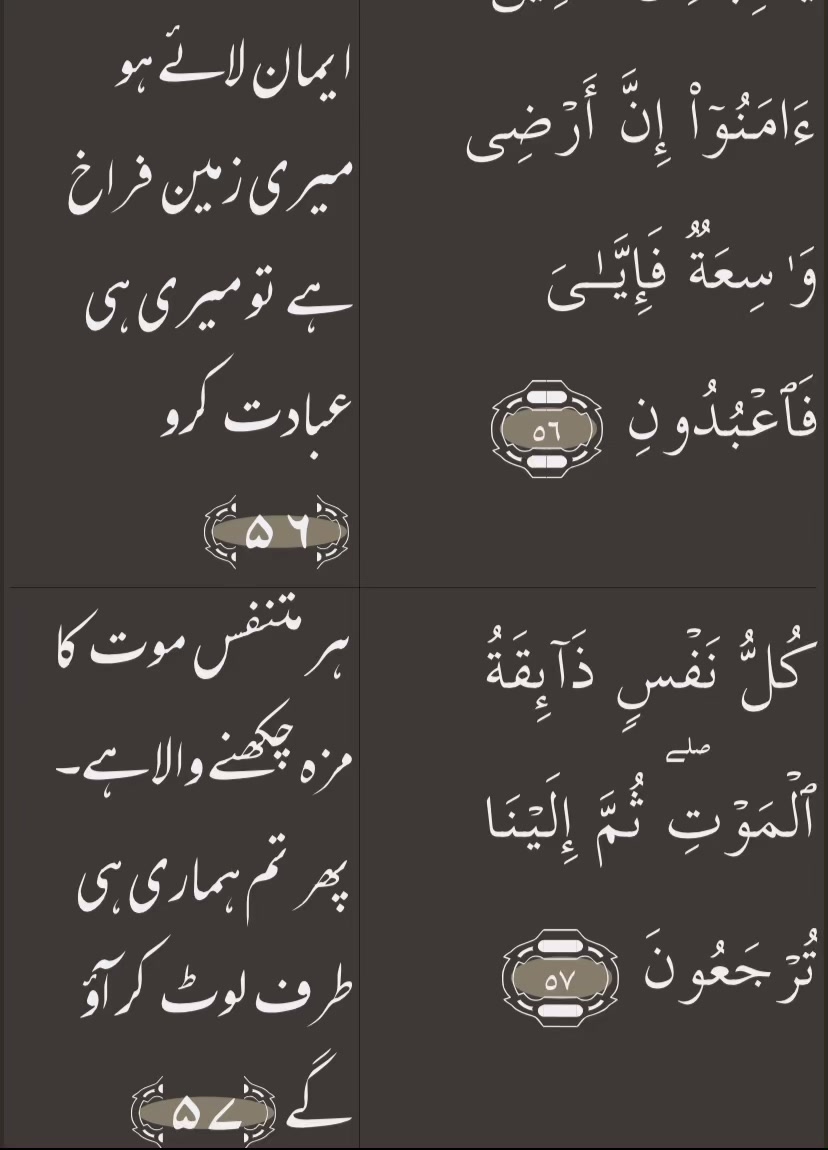 ءَامَنُوٓا۟ إِنَّ أَرْضِى
وَٰسِعَةٌ فَإِيَّـٰىَ
فَٱعْبُدُونِ ٥٦
ایمان لائے ہو
میری زمین فراخ
ہے تو میری ہی
عبادت کرو
۵۶
كُلُّ نَفْسٍ ذَآئِقَةُ
ٱلْمَوْتِ ۖ ثُمَّ إِلَيْنَا
تُرْجَعُونَ ٥٧
ہر متنفس موت کا
مزہ چکھنے والا ہے۔
پھر تم ہماری ہی
طرف لوٹ کر آؤ
گے ۵۷